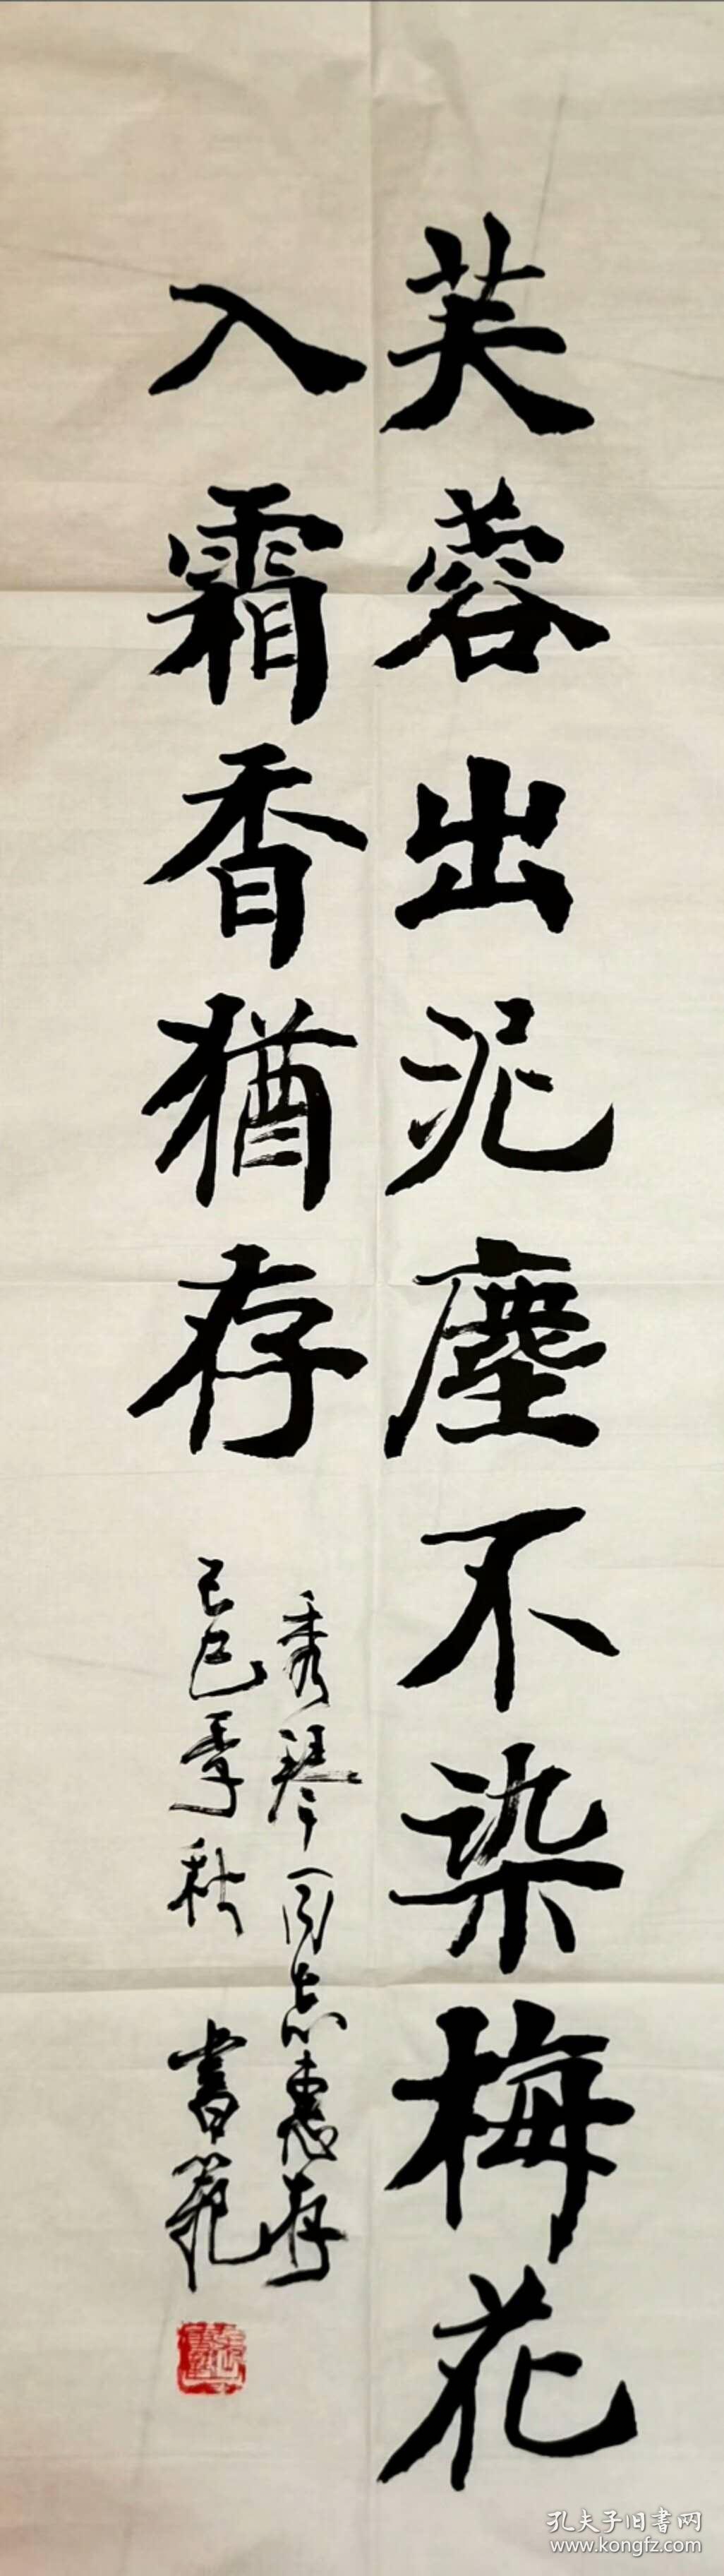 芙蓉出泥塵不染梅花
入霜香猶存
秀琴同志惠存
己巳季秋 書範
孔夫子旧書网
www.kongfz.com